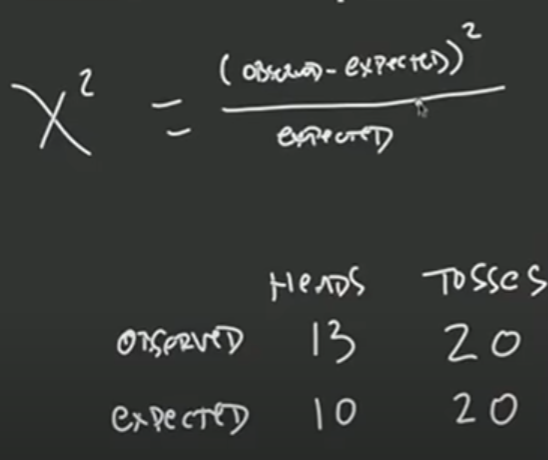 (observed - expected))²
χ² =
expected
Heads Tosses
observed 13 20
expected 10 20